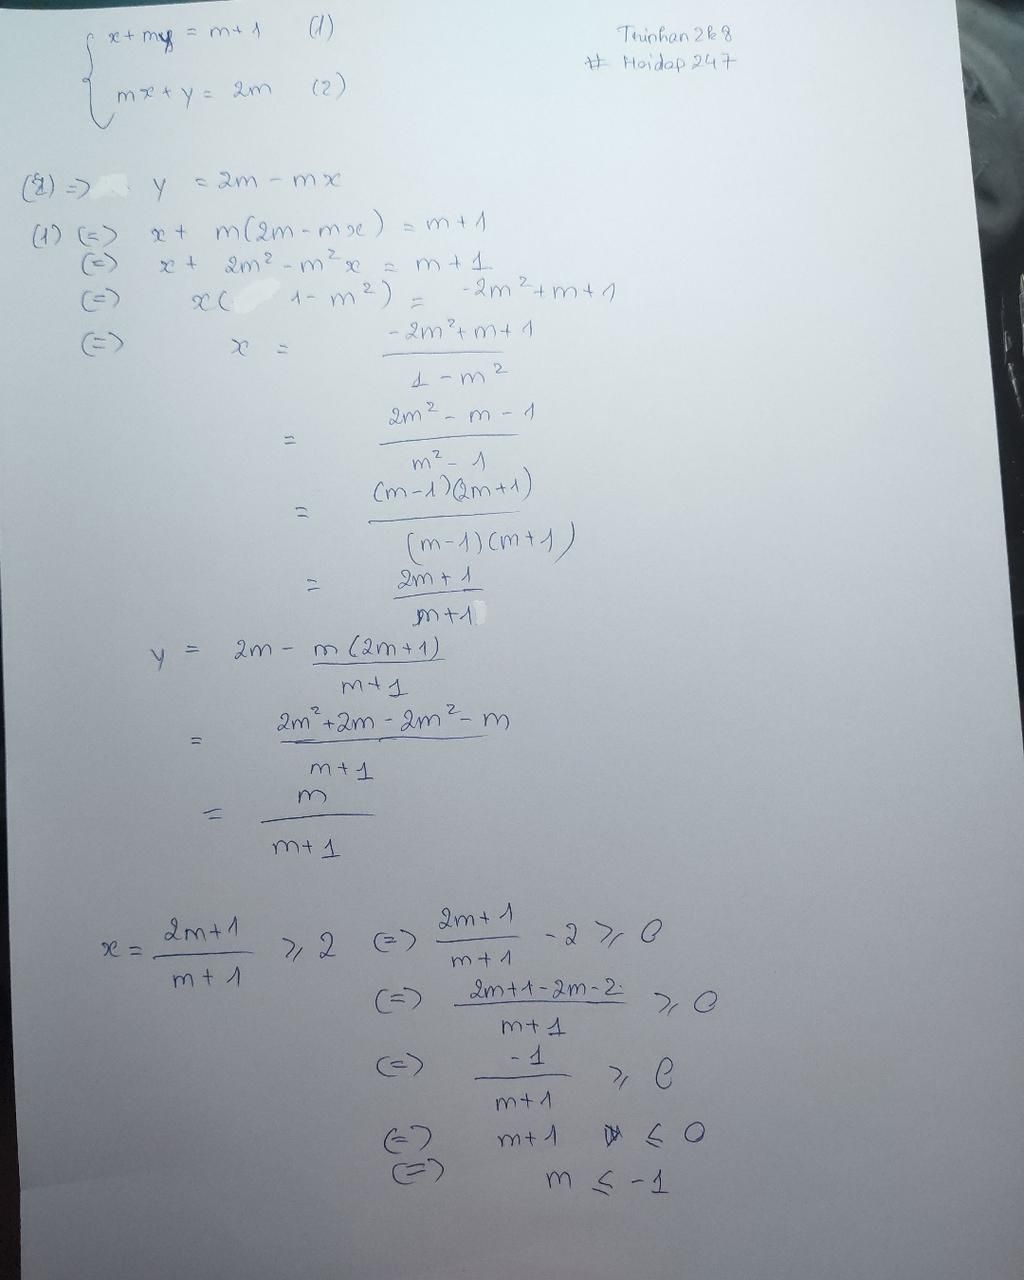 x + my = m + 1 (1)
Trinhan2k8
# Hoidap247
mx + y = 2m (2)
(2) => y = 2m - mx
(1) (=) x + m(2m - mx) = m + 1
(=) x + 2m² - m²x = m + 1
(=) x(1 - m²) = -2m² + m + 1
(=) x = (-2m² + m + 1)/(1 - m²)
= (2m² - m - 1)/(m² - 1)
= (m-1)(2m+1)/(m-1)(m+1)
= (2m + 1)/(m + 1)
y = 2m - m(2m+1)/(m + 1)
= (2m² + 2m - 2m² - m)/(m + 1)
= m/(m + 1)
x = (2m + 1)/(m + 1) ⩾ 2 (=) (2m + 1)/(m + 1) - 2 ⩾ 0
(=) (2m + 1 - 2m - 2)/(m + 1) ⩾ 0
(=) -1/(m + 1) ⩾ 0
(=) m + 1 ⩽ 0
(=) m ⩽ -1